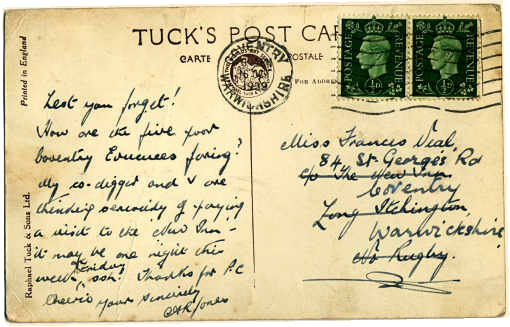 TUCK'S POST CAR
CARTE POSTALE
FOR ADDRE
COVENTRY
WARWICKSHIRE
1939
POSTAGE REVENUE
½D
POSTAGE REVENUE
½D
Printed in England
Raphael Tuck & Sons Ltd.
Lest you forget!
How are the five poor
Coventry Evacuees faring?
My co-digger and I are
thinking seriously of paying
a visit to the New Inn -
it may be one night this
week, or Friday
ooh! Thanks for P.C
Cheerio Your Sincerely
Jones
Miss Frances Veal,
84, St George's Rd
c/o The New Inn
Coventry
Long Itchington,
Warwickshire
Nr Rugby.